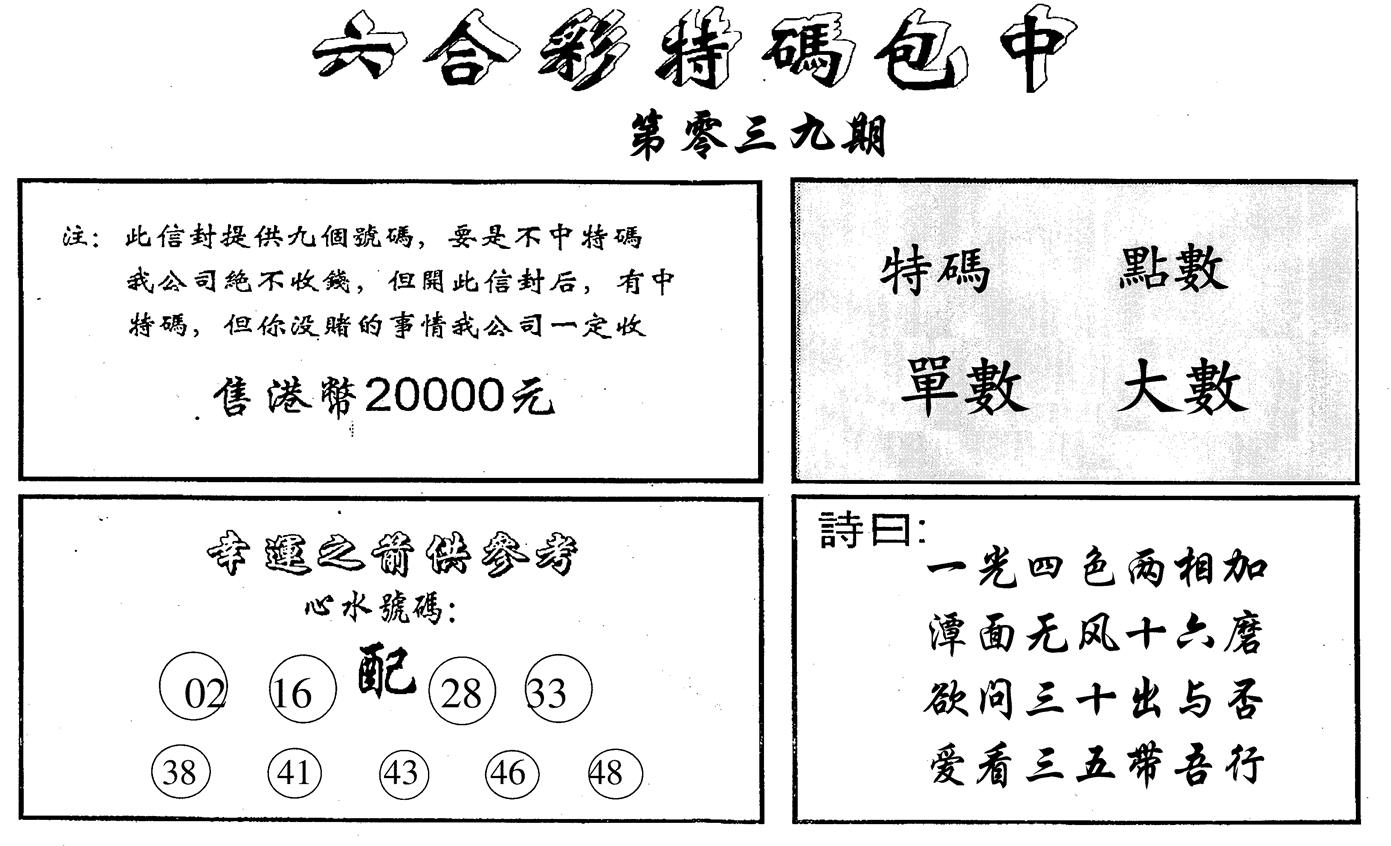 六合彩特碼包中
第零三九期
注：此信封提供九個號碼，要是不中特碼
我公司絕不收錢，但開此信封后，有中
特碼，但你没賭的事情我公司一定收
售港幣20000元
特碼 點數
單數 大數
幸運之箭供參考
心水號碼：
02 16 配 28 33
38 41 43 46 48
詩曰：
一光四色两相加
潭面无风十六磨
欲问三十出与否
爱看三五带吾行